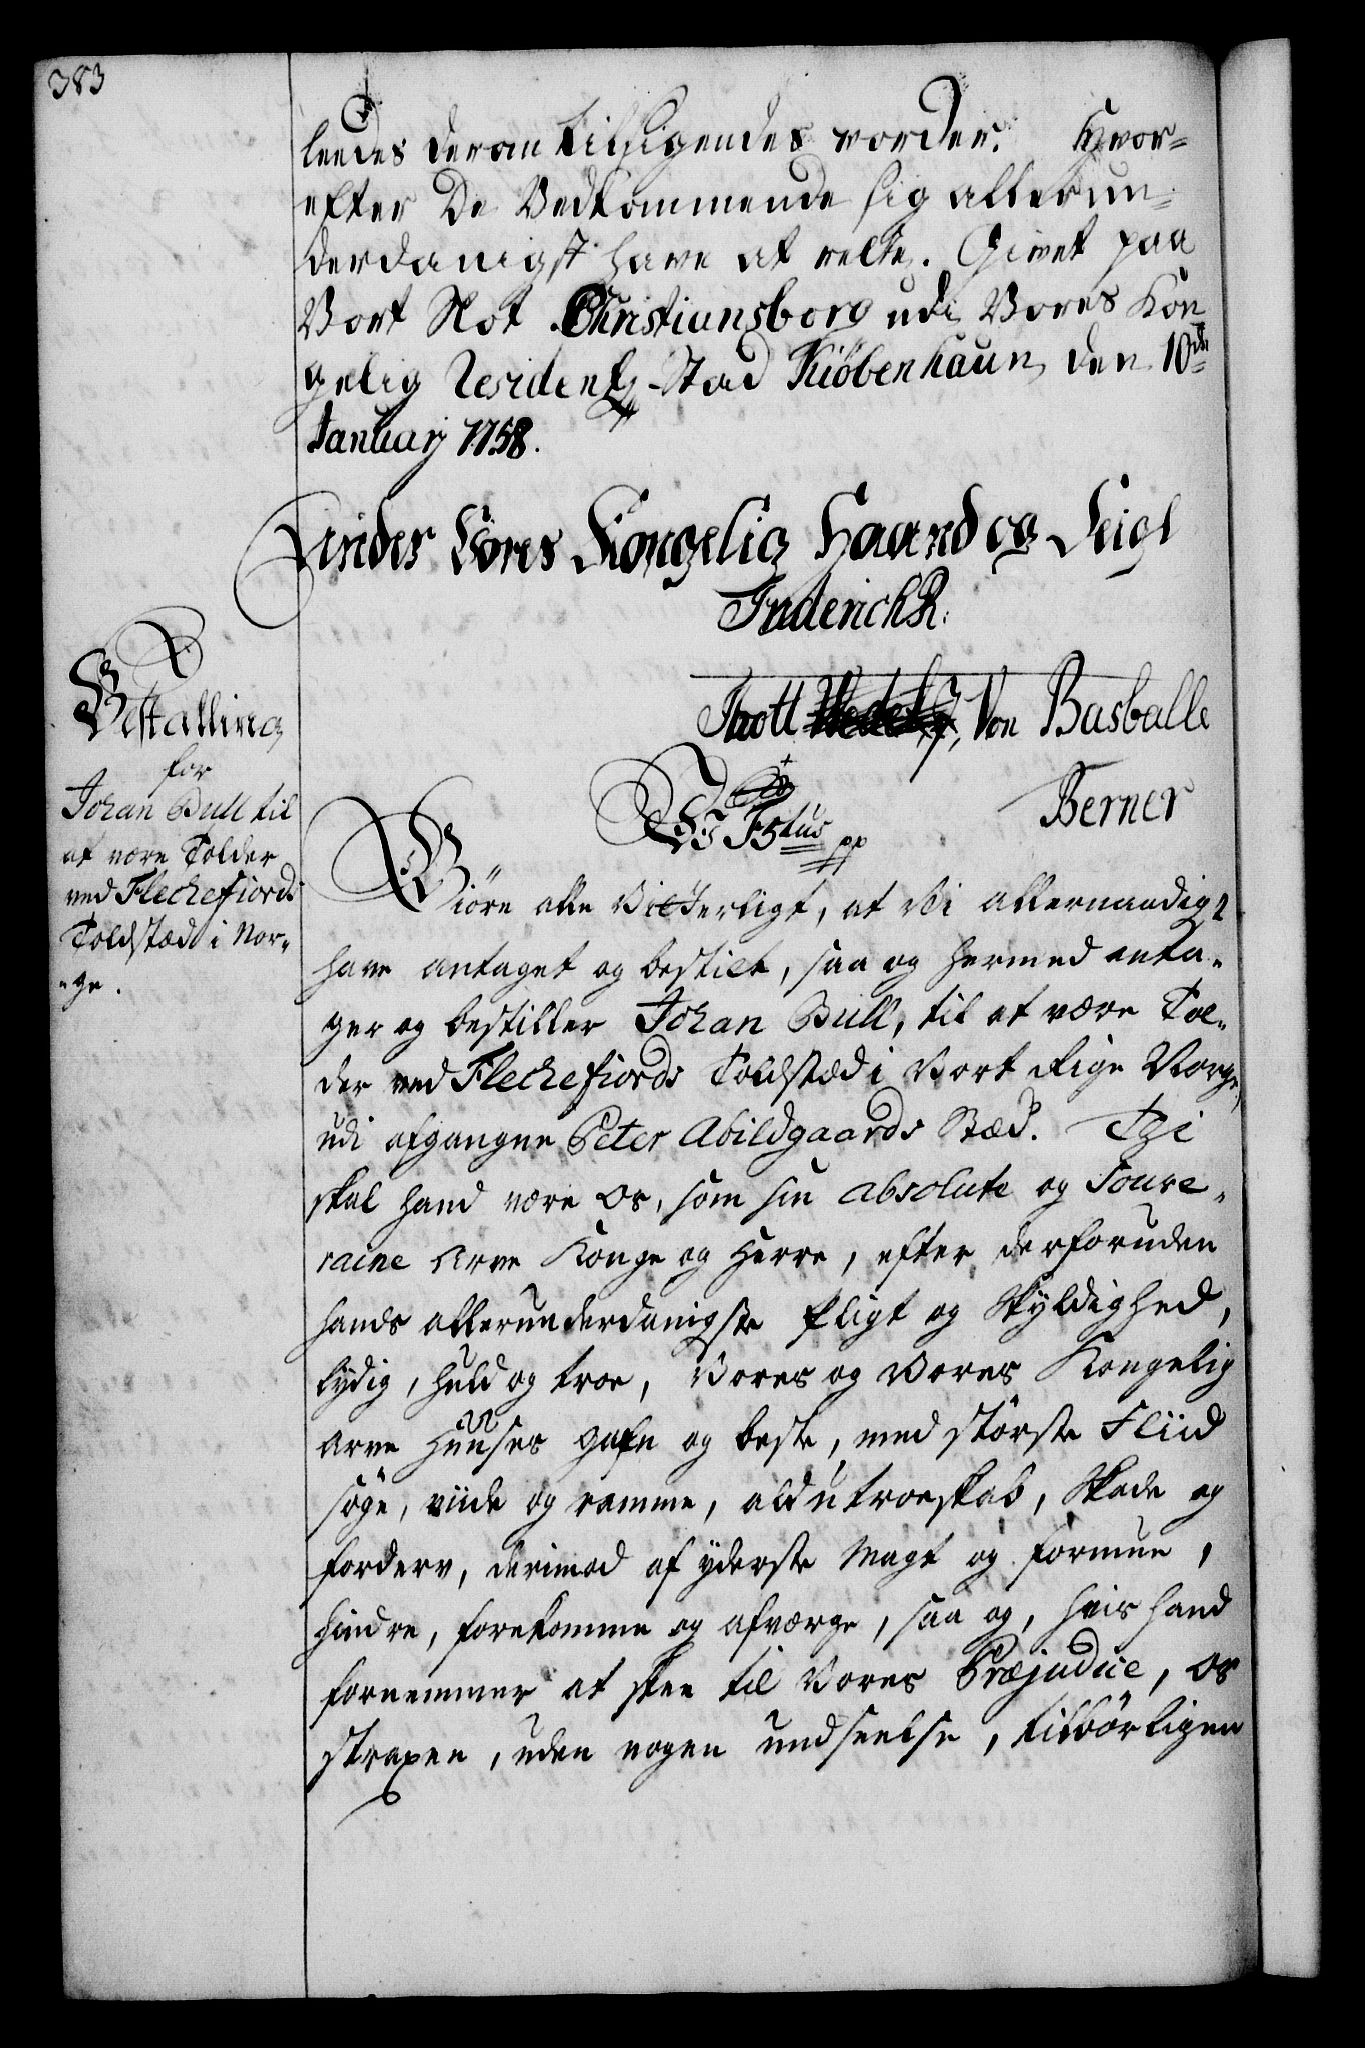 383
leedes derom tilsigendes vorder. Hvor-
efter De Vedkommende sig allerun-
derdanigst have at rette. Givet paa
Vort Slot Christiansborg udi Vores Kon
gelig Residentz-Stad Kiöbenhaun, den 10de
Januarj 1758.
Under Vores Kongelig Haand og Seigl
Friderich R.
Thott Von Basballe
Berner
Bestalling
for
Johan Bull til
at være Tolder
ved Flechefiords
Toldstæd i Nor-
-ge.
Wi F5tus pp
Giöre alle Vitterligt, at Vi allernaadigst
have antaget og bestilt, saa og hermed anta-
ger og bestiller Johan Bull, til at være Tol-
der ved Flechefiords Toldstæd i Vort Rige Norge,
udi afgangne Peter Abildgaards Stæd. Thi
skal hand være Os, som sin absolute og Souve-
raine Arve Konge og Herre, efter derforuden
hands allerunderdanigste Pligt og Skyldighed,
lydig, huld og troe, Vores og Vores Kongelig
Arve Huuses gafn og beste, med störste Fliid
söge, viide og ramme, ald utroeskab, Skade og
forderv, derimod af yderste Magt og formue,
hindre, forekomme og afværge, saa og, hvis hand
fornemmer at skee til Vores Præjudice, Os
straxen, uden nogen undseelse, tilbörligen